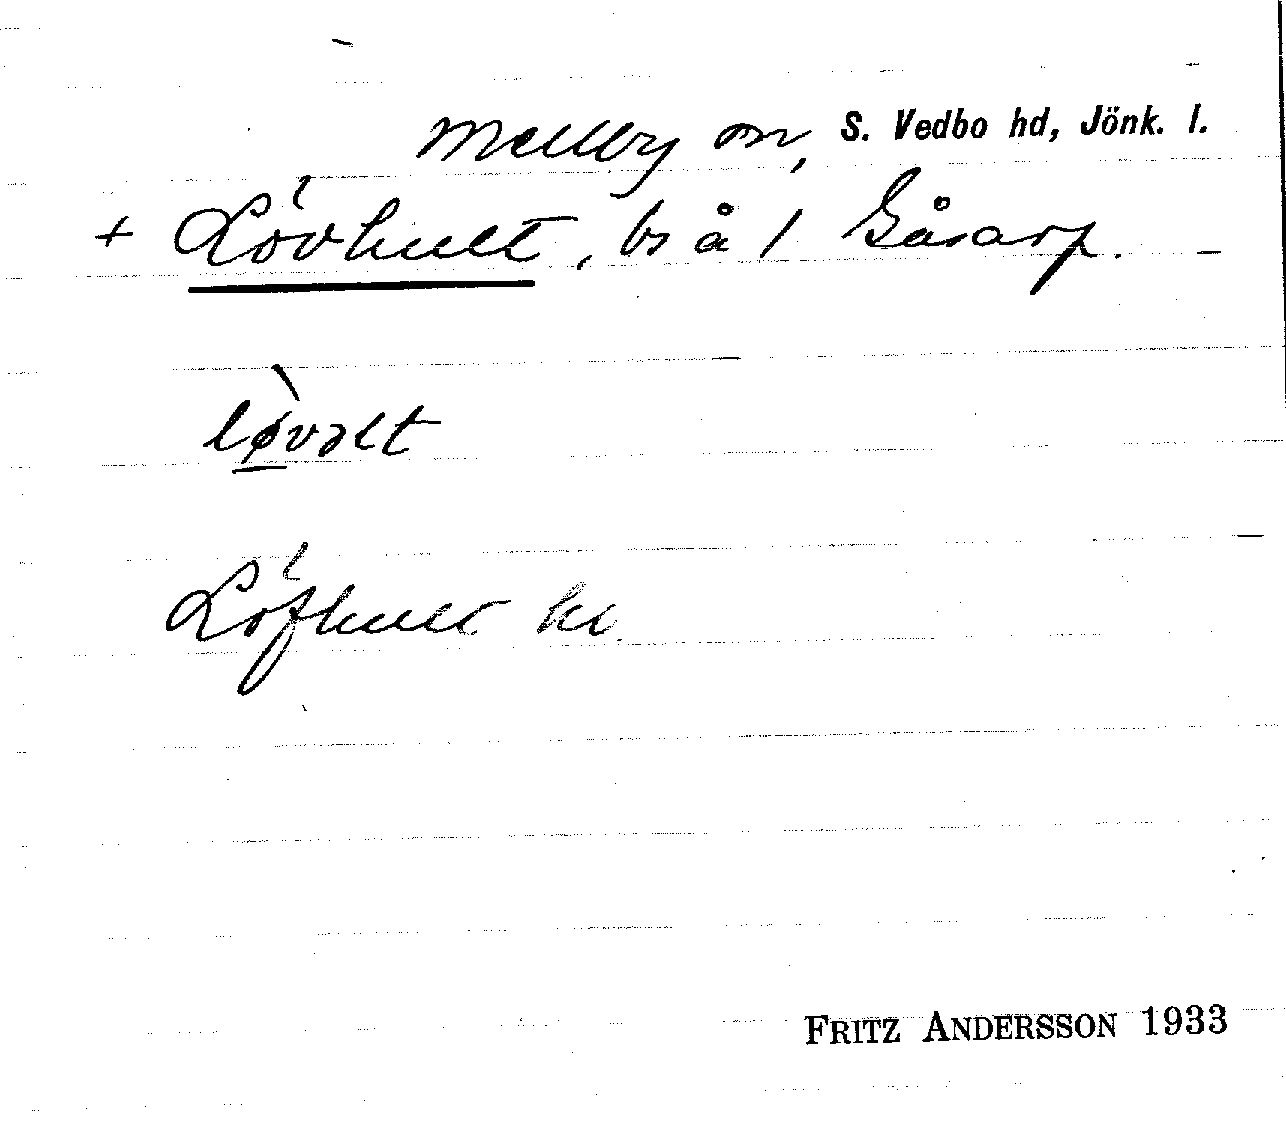 Mellby sn, S. Vedbo hd, Jönk. l.
+ Lövhult, bs å 1 Gåsarp.
lø̀vəlt
Löfhult kl.
FRITZ ANDERSSON 1933